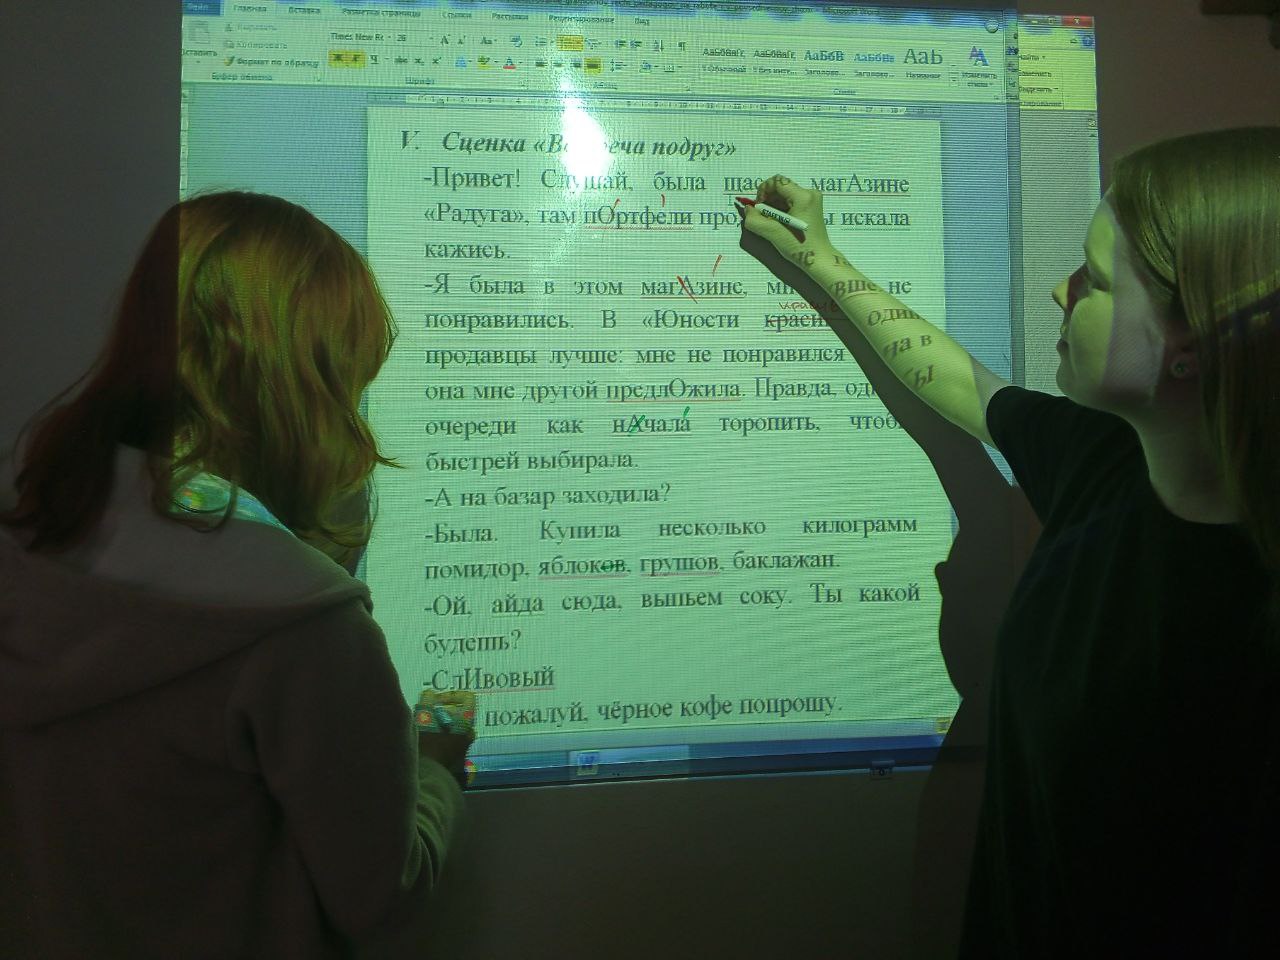 Файл Главная Вставка Разметка страницы Ссылки Рассылки Рецензирование Вид
Вырезать
Вставить Копировать
Формат по образцу
Буфер обмена
Times New Ro 26
Шрифт
Абзац
АаБбВвГг, АаБбВвГг, АаБбВ АаБбВв АаБ
Название
Изменить
стили
Стили
V. Сценка «В ча подруг»
-Привет! Слушай, была магАзине
«Радуга», там пОртфели искала
кажись.
-Я была в этом магАзине, не
понравились. В «Юности
продавцы лучше: мне не понравился
она мне другой предлОжила. Правда,
очереди как нАчала торопить,
быстрей выбирала.
-А на базар заходила?
-Была. Купила несколько килограмм
помидор, яблоков, грушов, баклажан.
-Ой, айда сюда, выпьем соку. Ты какой
будешь?
-СлИвовый
пожалуй, чёрное кофе попрошу.